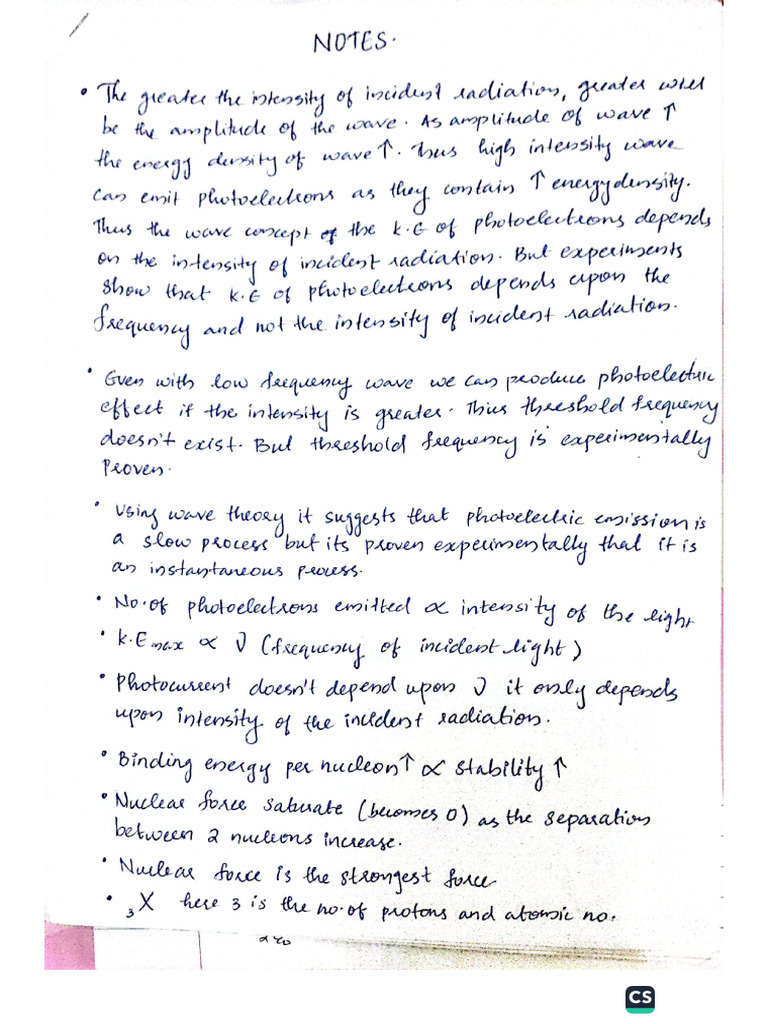 NOTES.
• The greater the intensity of incident radiation, greater will
be the amplitude of the wave. As amplitude of wave ↑
the energy density of wave ↑. Thus high intensity wave
can emit photoelectrons as they contain ↑ energy density.
Thus the wave concept of the K.E of photoelectrons depends
on the intensity of incident radiation. But experiments
show that K.E of photoelectrons depends upon the
frequency and not the intensity of incident radiation.
• Even with low frequency wave we can produce photoelectric
effect if the intensity is greater. Thus threshold frequency
doesn't exist. But threshold frequency is experimentally
Proven.
• Using wave theory it suggests that photoelectric emission is
a slow process but its proven experimentally that it is
an instantaneous process.
• No. of photoelectrons emitted ∝ intensity of the light
• K.E max ∝ ν (frequency of incident light)
• Photocurrent doesn't depend upon ν it only depends
upon intensity of the incident radiation.
• Binding energy per nucleon ↑ ∝ stability ↑
• Nuclear force saturate (becomes 0) as the separation
between 2 nucleons increase.
• Nuclear force is the strongest force
• ₃X here 3 is the no. of protons and atomic no.
CS